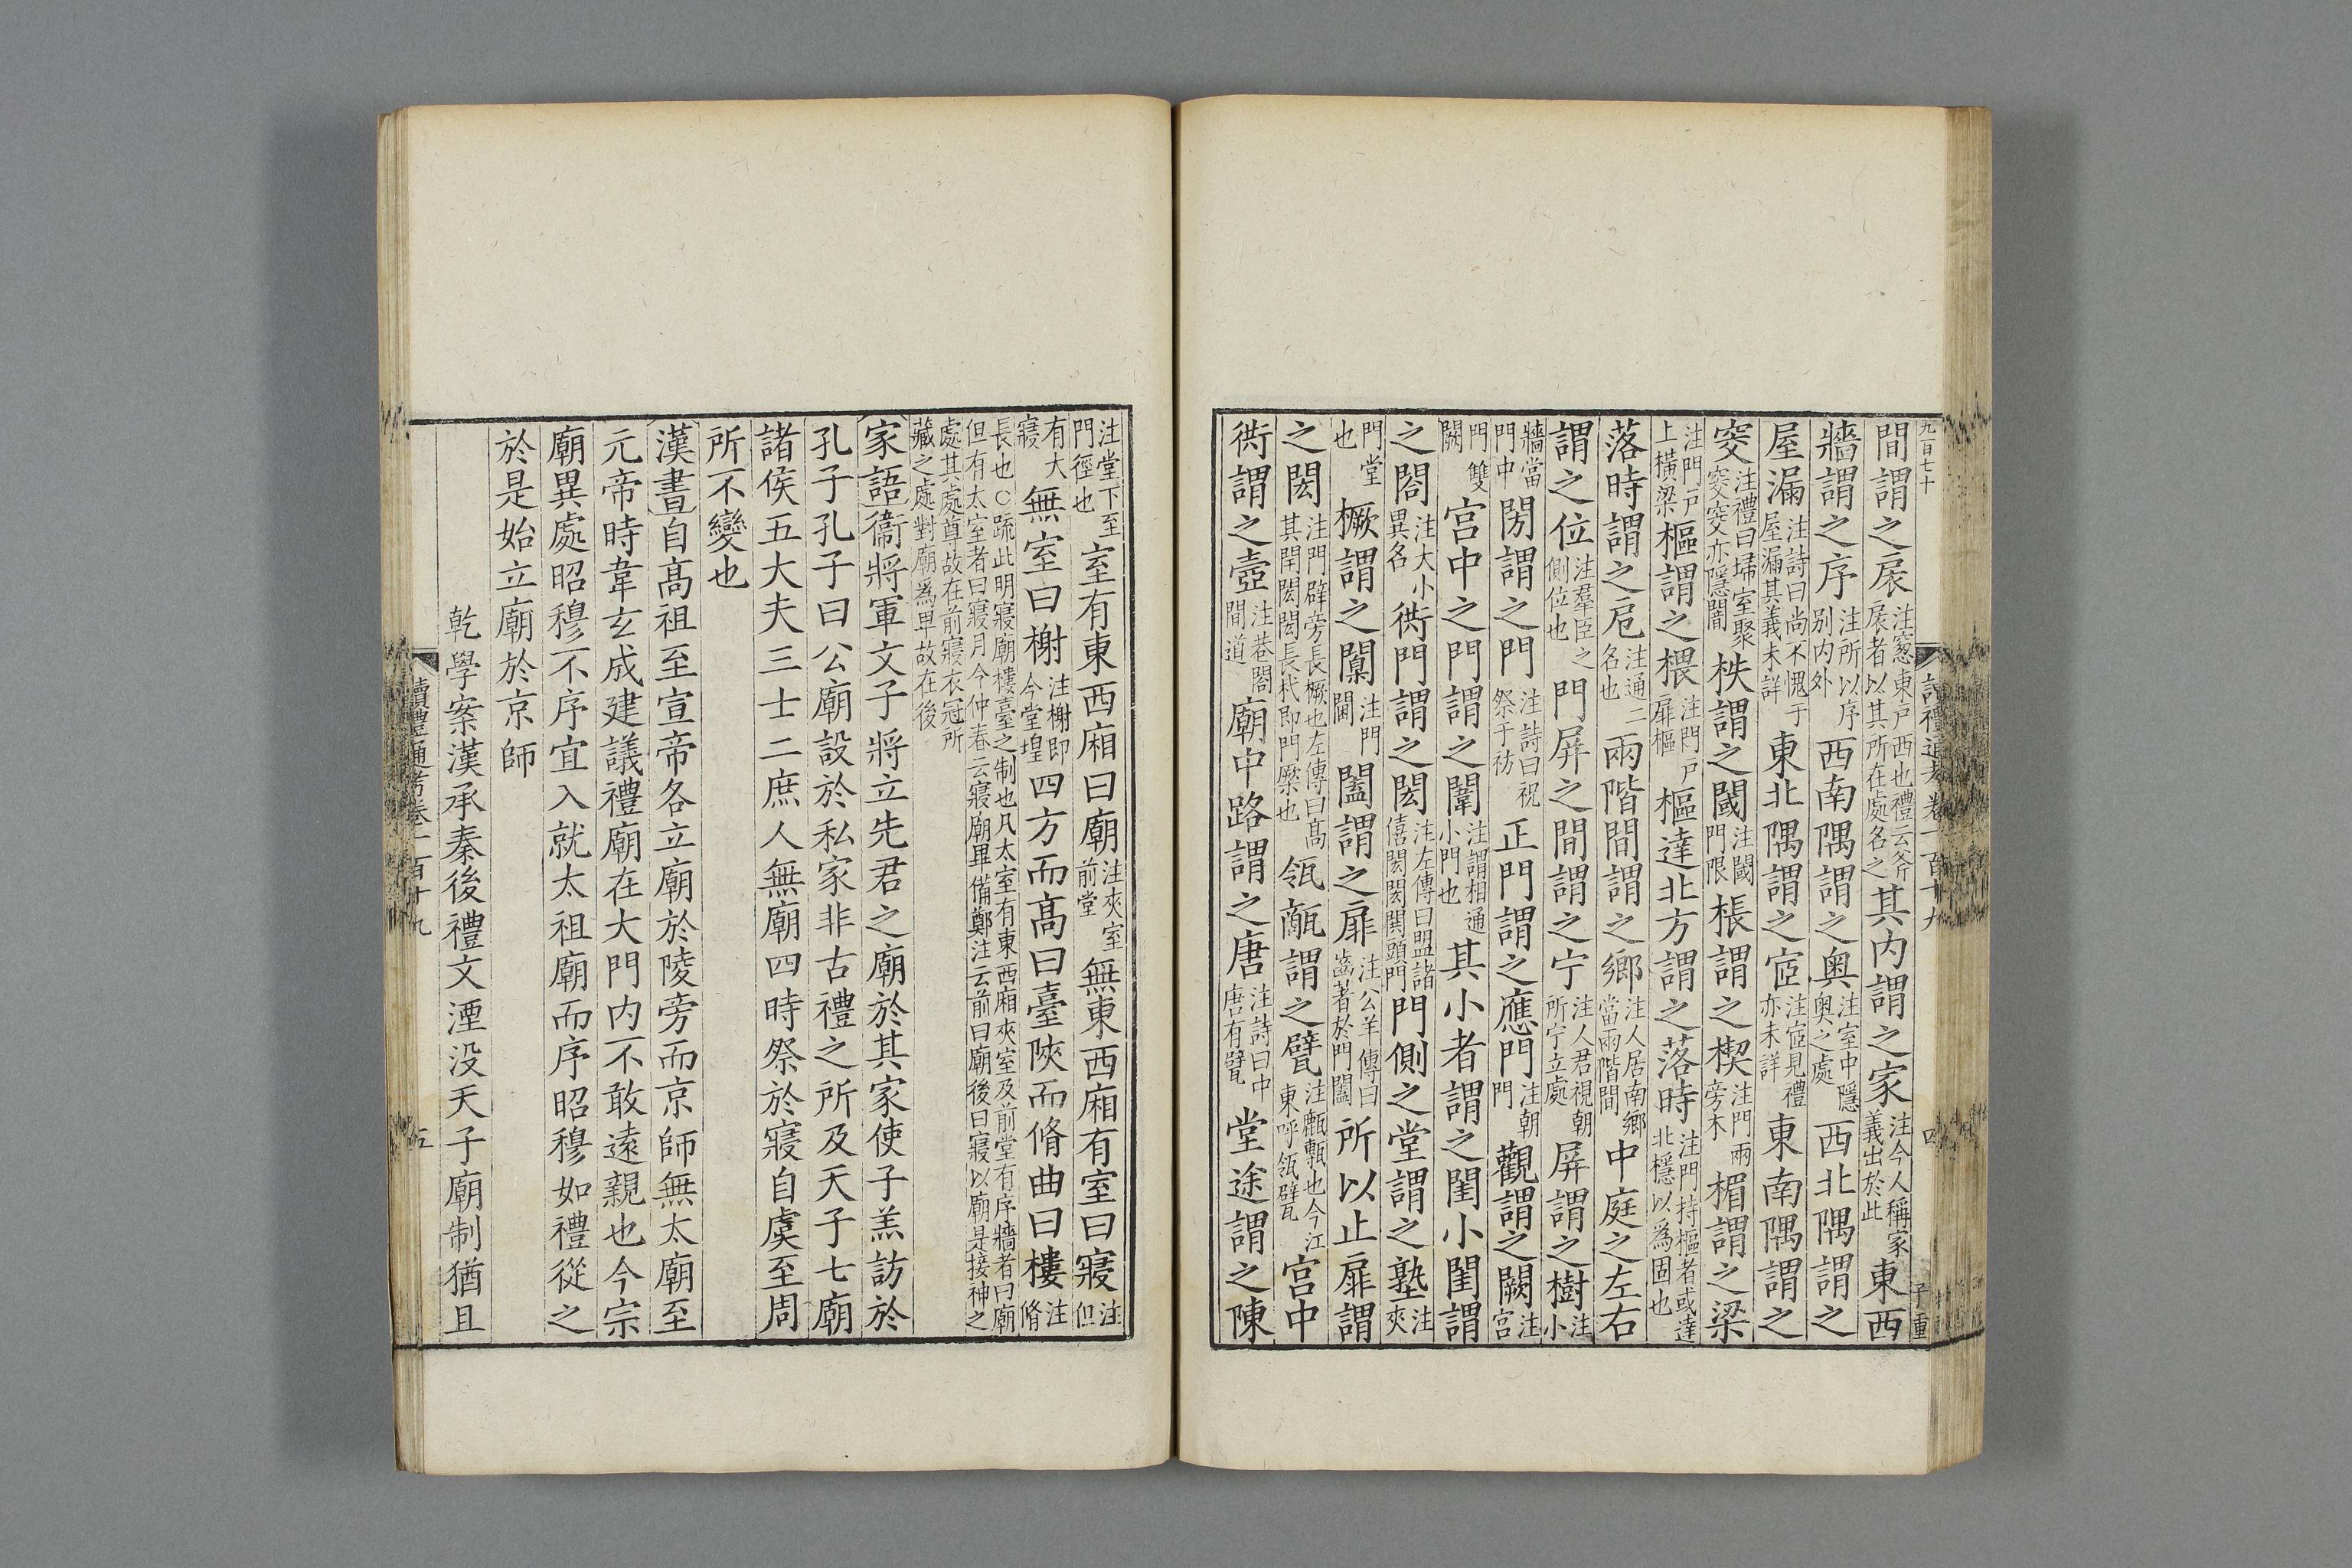 九百七十
讀禮通考卷一百十九 四
子重
間謂之扆注窻東戸西也禮云斧扆者以其所在處名之其内謂之家注今人稱家義出於此東西
牆謂之序注所以序别内外西南隅謂之奥注室中隱奥之處西北隅謂之
屋漏注詩曰尚不愧于屋漏其義未詳東北隅謂之宧注宧見禮亦未詳東南隅謂之
窔注禮曰埽室聚窔窔亦隱闇柣謂之閾注閾門限棖謂之楔注門兩旁木楣謂之梁
注門戸上橫梁樞謂之椳注門戸扉樞樞達北方謂之落時注門持樞者或達北檼以為固也
落時謂之戹注通二名也兩階間謂之鄉注人居南鄉當兩階間中庭之左右
謂之位注羣臣之側位也門屏之間謂之宁注人君視朝所宁立處屏謂之樹注小
牆當門中閍謂之門注詩曰祝祭于祊正門謂之應門注朝門觀謂之闕注宫
門雙闕宫中之門謂之闈注謂相通小門也其小者謂之閨小閨謂
之閤注大小異名衖門謂之閎注左傳曰盟諸僖閎閎閧頭門門側之堂謂之塾注夾
門堂也橛謂之闑注門閫闔謂之扉注公羊傳曰齒著於門闔所以止扉謂
之閎注門辟旁長橛也左傳曰高其閈閎閎長杙即門橜也瓴甋謂之甓注㼾甎也今江東呼瓴甓宫中
衖謂之壼注巷閤間道廟中路謂之唐注詩曰中唐有甓堂途謂之陳
注堂下至門徑也室有東西廂曰廟注夾室前堂無東西廂有室曰寢注但
有大寢無室曰榭注榭即今堂堭四方而高曰臺陜而脩曲曰樓注脩
長也○疏此明寢廟樓臺之制也凡太室有東西廂夾室及前堂有序牆者曰廟但有太室者曰寢月令仲春云寢廟畢備鄭注云前曰廟後曰寢以廟是接神之
處其處尊故在前寢衣冠所藏之處對廟為卑故在後
家語衞將軍文子將立先君之廟於其家使子羔訪於
孔子孔子曰公廟設於私家非古禮之所及天子七廟
諸侯五大夫三士二庶人無廟四時祭於寢自虞至周
所不變也
漢書自高祖至宣帝各立廟於陵旁而京師無太廟至
元帝時韋玄成建議禮廟在大門内不敢遠親也今宗
廟異處昭穆不序宜入就太祖廟而序昭穆如禮從之
於是始立廟於京師
乾學案漢承秦後禮文湮没天子廟制猶且
讀禮通考卷一百十九 五